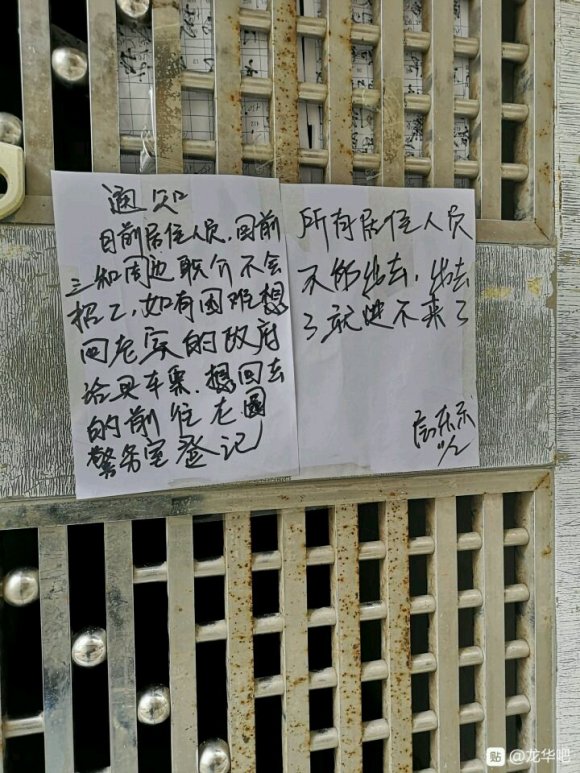 通知
目前居住人员，目前
三和周边职介不会
招工，如有困难想
回老家的政府
给买车票，想回去
的前往
警务室登记
所有居住人员
不能出去，出去
了就进不来了
房东示
贴 @龙华吧